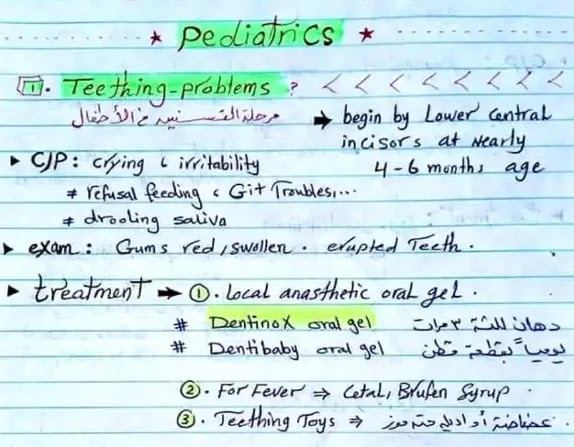 ★ Pediatrics ★
1. Teething-problems ?
مرحلة التسنين في الأطفال
→ begin by Lower Central
incisors at Nearly
4-6 months age
▸ C/P: crying & irritability
# refusal feeding & Git Troubles,...
# drooling saliva
▸ exam: Gums red, swollen. erupted Teeth.
▸ treatment → ①. Local anasthetic oral gel.
# Dentinox oral gel دهان للثة ٣ مرات
# Dentibaby oral gel يومياً بقطعة قطن
②. For Fever ⇒ Cetal, Brufen Syrup.
③. Teething Toys ⇒ عضاضة أو اديله حته موز.